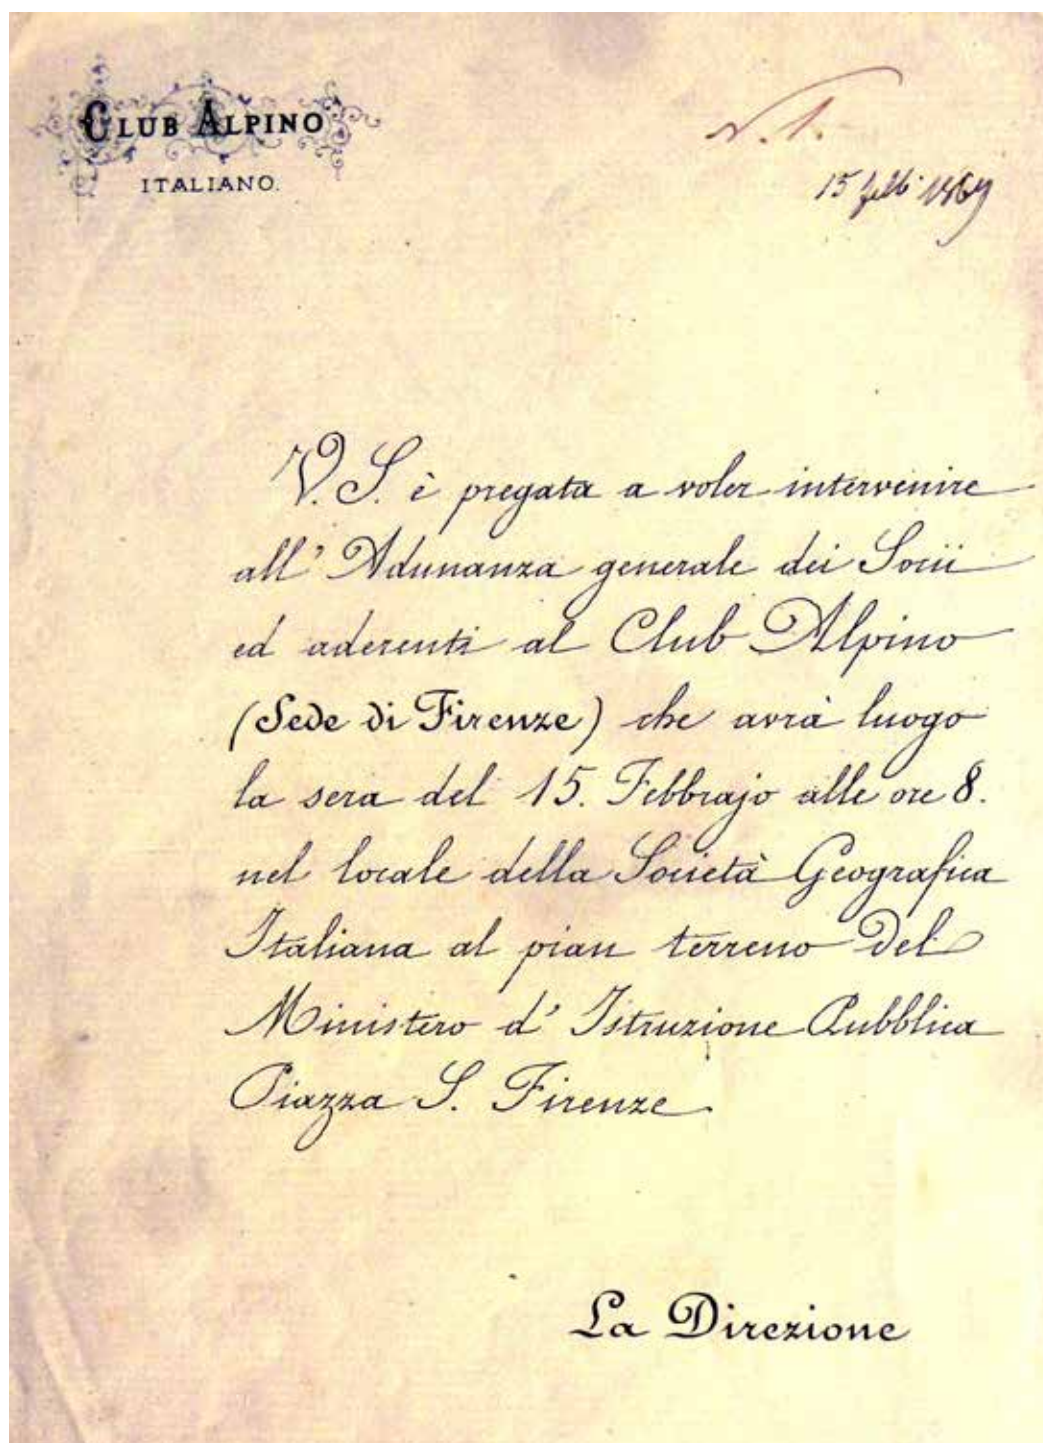 CLUB ALPINO
ITALIANO.
N. 1.
15 febb. 1869
V. S. è pregata a voler intervenire
all' Adunanza generale dei Socii
ed aderenti al Club Alpino
(Sede di Firenze) che avrà luogo
la sera del 15. Febbrajo alle ore 8.
nel locale della Società Geografica
Italiana al pian terreno del
Ministero d' Istruzione Pubblica
Piazza S. Firenze.
La Direzione